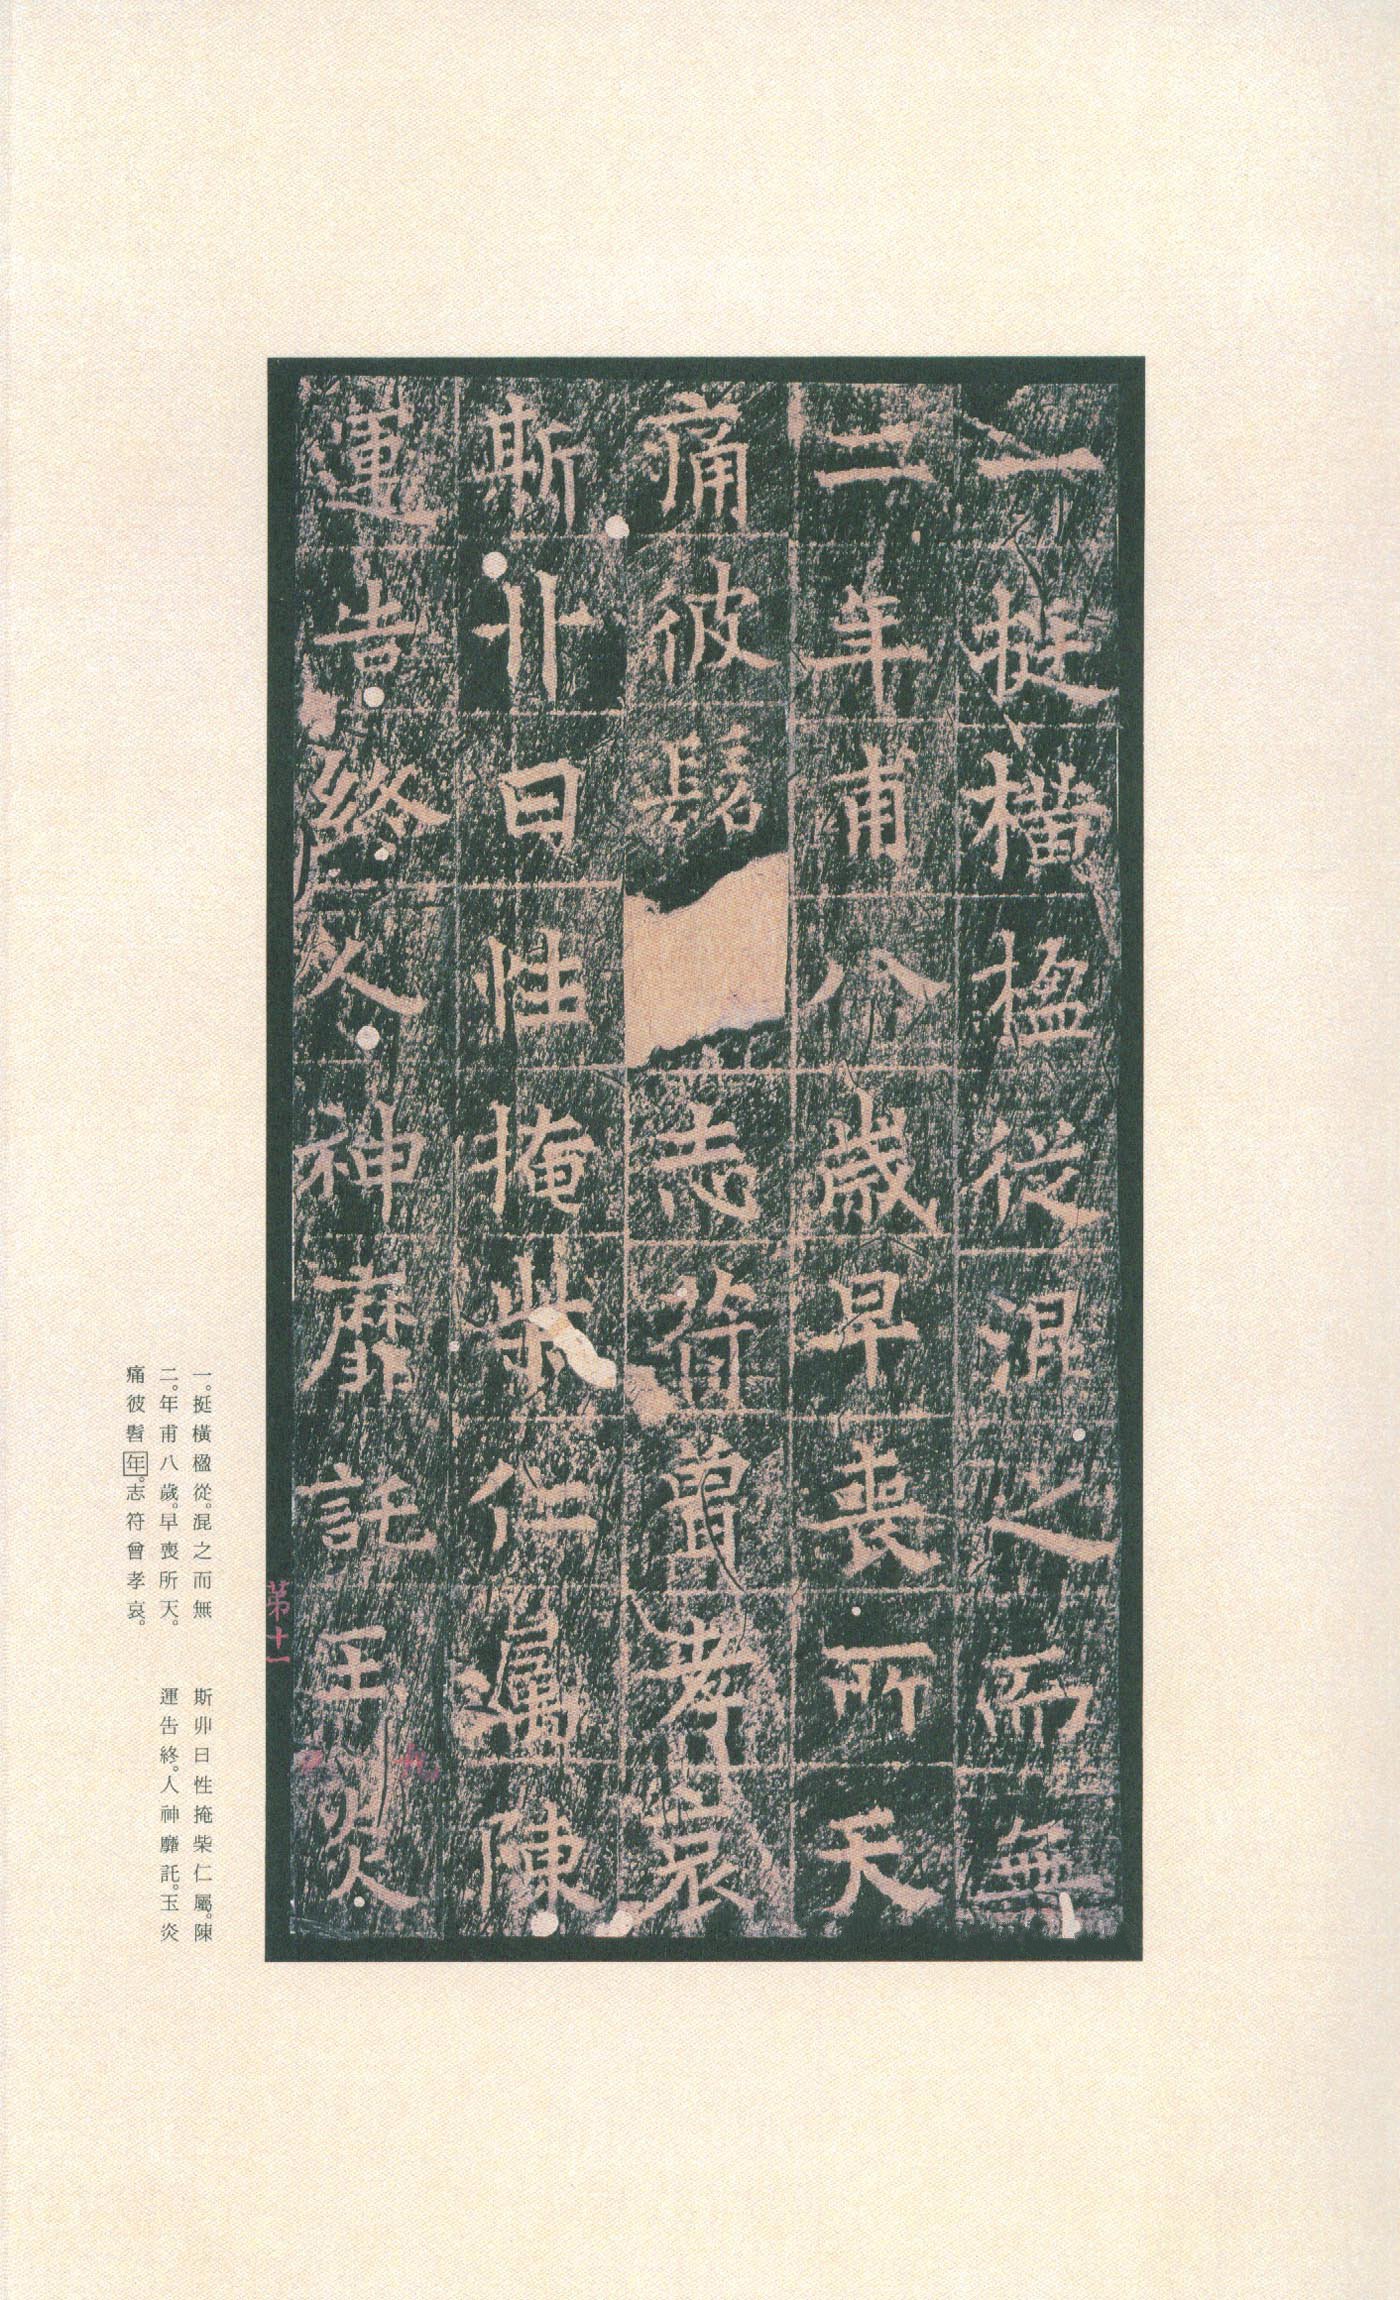 一挺橫楹從混之而無
二年甫八歲早喪所天
痛彼髫志符曾孝哀
斯丱日性掩柴仁屬陳
運告終人神靡託玉炎
第十一
一。挺橫楹從。混之而無
二。年甫八歲。早喪所天。
痛彼髫年。志符曾孝哀。
斯丱日性掩柴仁屬。陳
運告終。人神靡託。玉炎